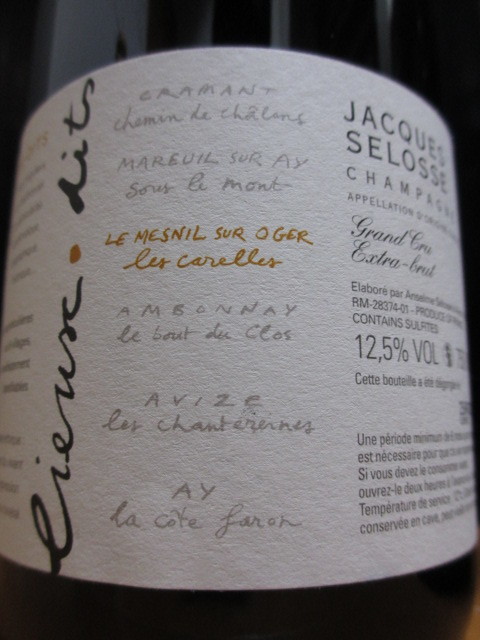 lieux • dits
CRAMANT
chemin de châlons
MAREUIL SUR AY
sous le mont
LE MESNIL SUR OGER
les carelles
AMBONNAY
le bout du clos
AVIZE
les chantereines
AY
la côte faron
JACQUES
SELOSSE
CHAMPAGNE
APPELLATION D'ORIGINE
Grand Cru
Extra-brut
Elaboré par Anselme
RM-28374-01 - PRODUCE OF
CONTAINS SULFITES
12,5% VOL
Cette bouteille a été dégorgée
Une période minimum de
est nécessaire pour que
Si vous devez le consommer
ouvrez-le deux heures à
Température de service
conservée en cave,